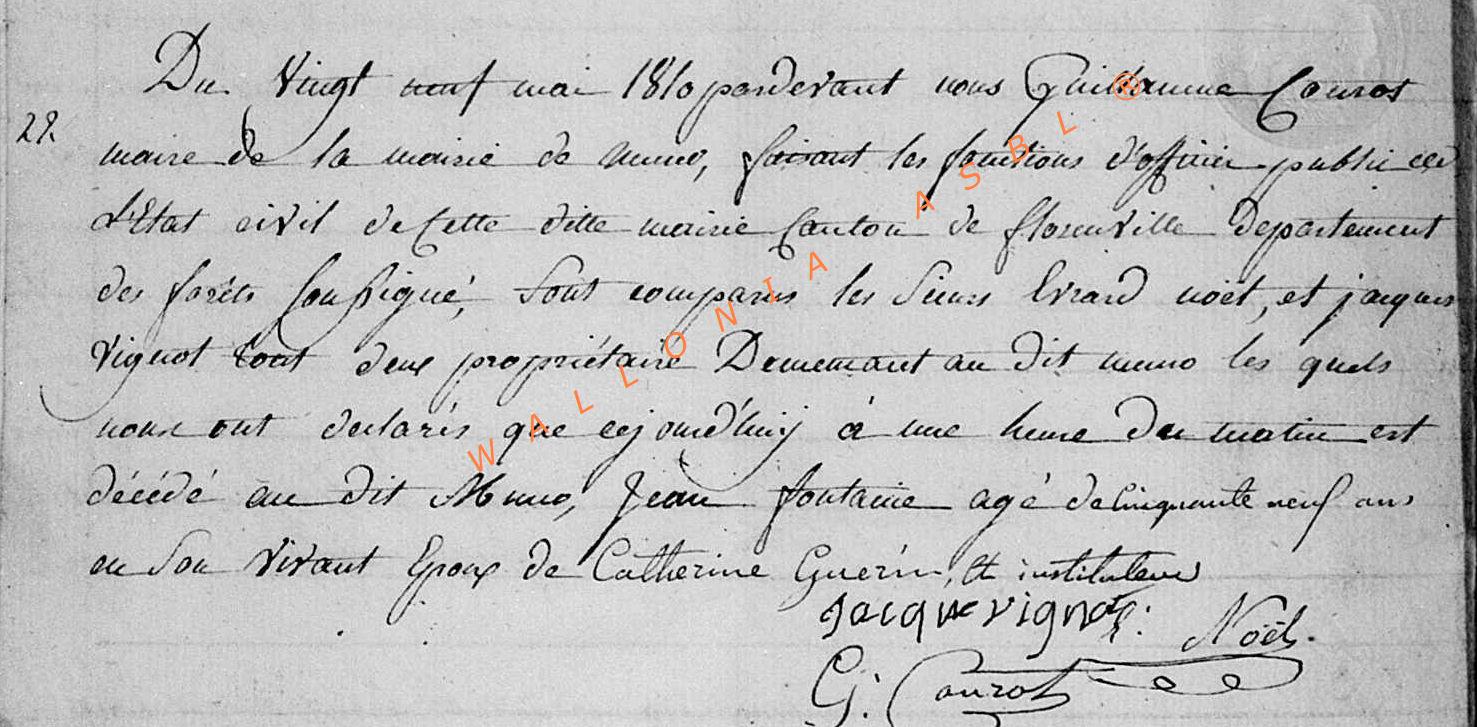 Du Vingt neuf mai 1810 pardevant nous Guillaume Courot
29.
maire de la mairie de muno, faisant les fonctions d'officier public de
L'Etat civil de Cette ditte mairie Canton de florenville departement
des forêts Soussigné, Sont comparus les Sieurs Evrard noël, et jacques
vignot tout deux propriétaire Demeurant au dit muno les quels
nous ont declarés que cejourd'huij à une heure du matin est
décédé au dit Muno, Jean fontaine agé de Cinquante neuf ans
en Son vivant Epoux de Catherine Guérin, et instituteur
Jacque vignot. Noël.
G. Courot
WALLONIA ASBL ®